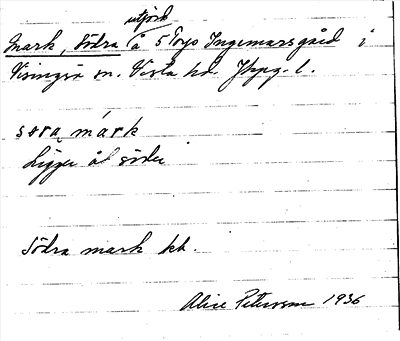 utjord
Mark, Södra å 5 Toys Ingemarsgård i
Visingsö sn. Vista hd. Jkpg. l.
sọrạ márk
Ligger åt söder
Södra mark kb.
Alice Petersson 1936